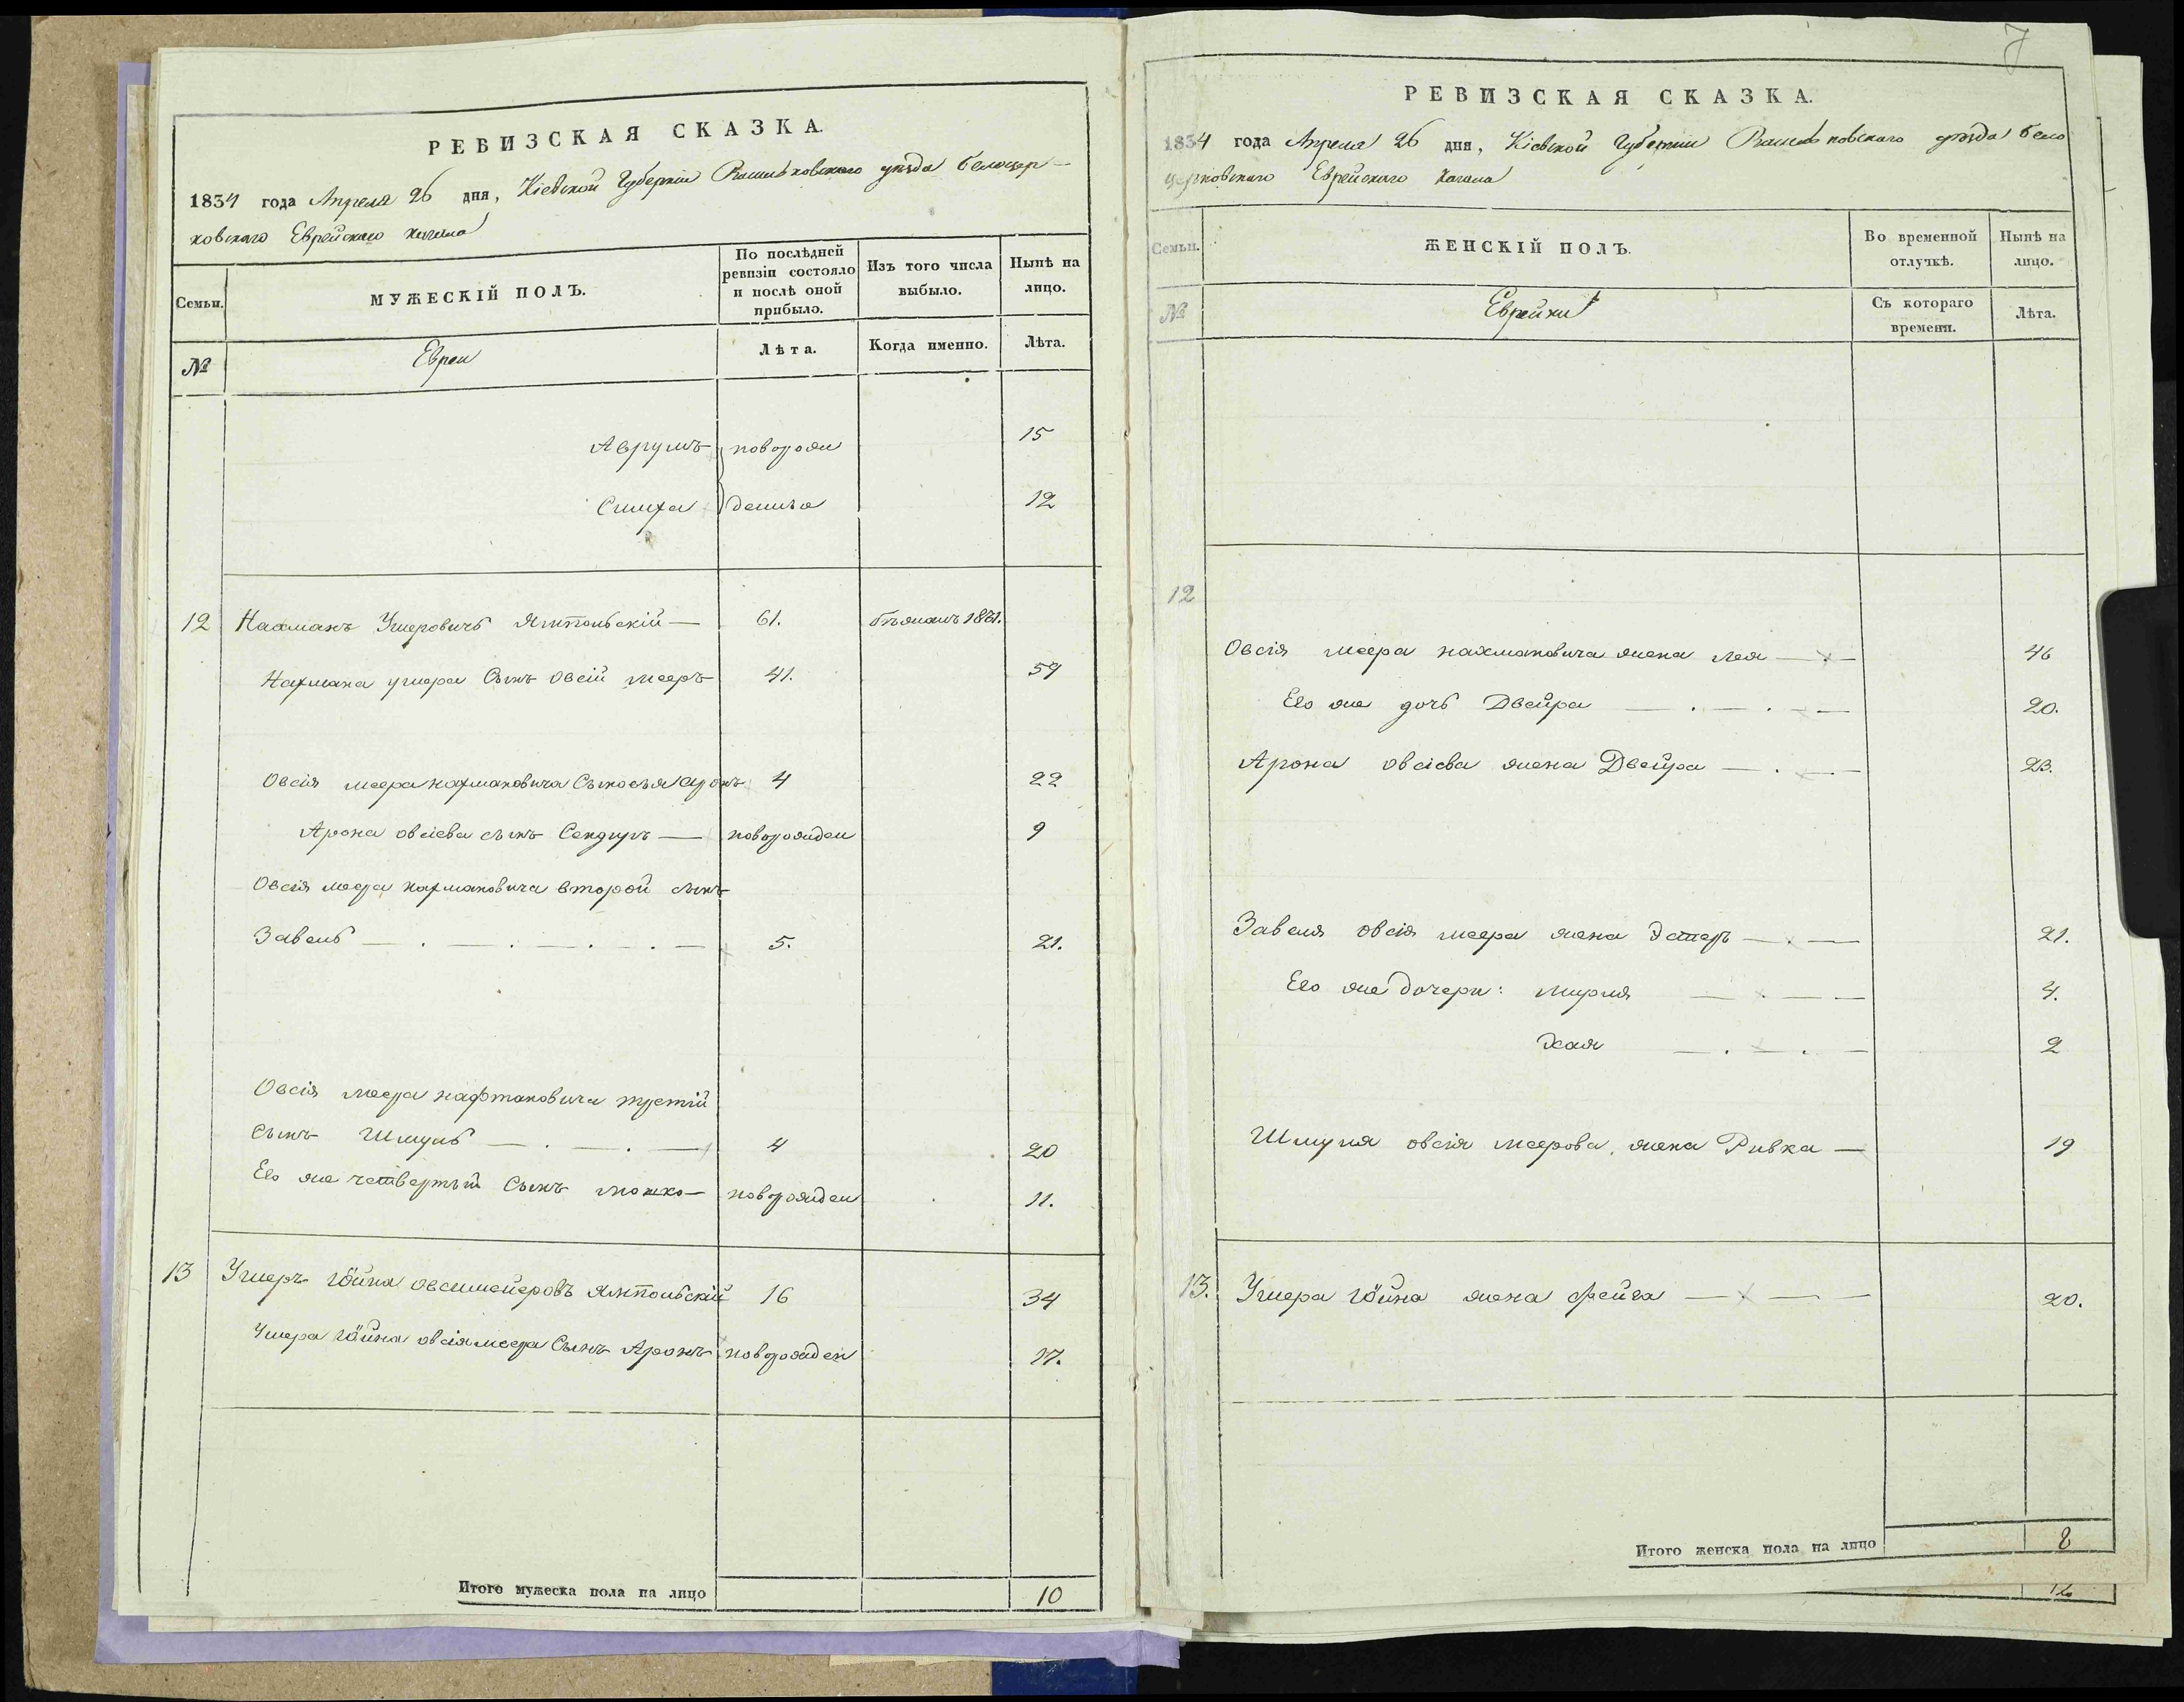 7
РЕВИЗСКАЯ СКАЗКА.
1834 года Апреля 26 дня, Кіевской Губерніи Васильковскаго уѣзда белоцер-
ковскаго Еврейскаго кагала
Семьи.
МУЖЕСКІЙ ПОЛЪ.
По послѣдней ревизіи состояло и послѣ оной прибыло.
Изъ того числа выбыло.
Нынѣ на лицо.
№
Евреи
Лѣта.
Когда именно.
Лѣта.
Аврумъ новорож 15
Симха денныа 12
12 Нахманъ Умеровичъ Ямпольскій — 61. 1831.
Нахмана умера Сынъ овсій мееръ 41. 59
Овсія меера нахмановича Сыновья Аронъ 4 22
Арона овсіева сынъ Сендеръ — новорожден 9
Овсія меера нахмановича второй сынъ
Завель — . — . — . — . — 5. 21.
Овсія меера нафтановича третій
сынъ Шмуль — . — . — 4 20
Его же четвертый Сынъ мошко — новорожден 11.
13 Умеръ Іойна овсимейеровъ Ямпольскій 16 34
Умера Іойна овсія меера Сынъ Аронъ новорожден 17.
Итого мужеска пола на лицо 10
РЕВИЗСКАЯ СКАЗКА.
1834 года Апреля 26 дня, Кіевской Губерніи Васильковскаго уѣзда бело
церковскаго Еврейскаго кагала
Семьи.
ЖЕНСКІЙ ПОЛЪ.
Во временной отлучкѣ.
Нынѣ на лицо.
№
Еврейки
Съ котораго времени.
Лѣта.
12
Овсія меера нахмановича жена Лея — 46
Его же дочь Двейра — . — . — 20.
Арона овсіева жена Двейра — . — 23.
Завеля овсія меера жена Эстеръ — 21.
Его же дочери: Мирля — 4.
Хая — . — . — 2
Шмуля овсія меерова жена Ривка — 19
13. Умера Іойна жена Фейга — 20.
Итого женска пола на лицо 8
12